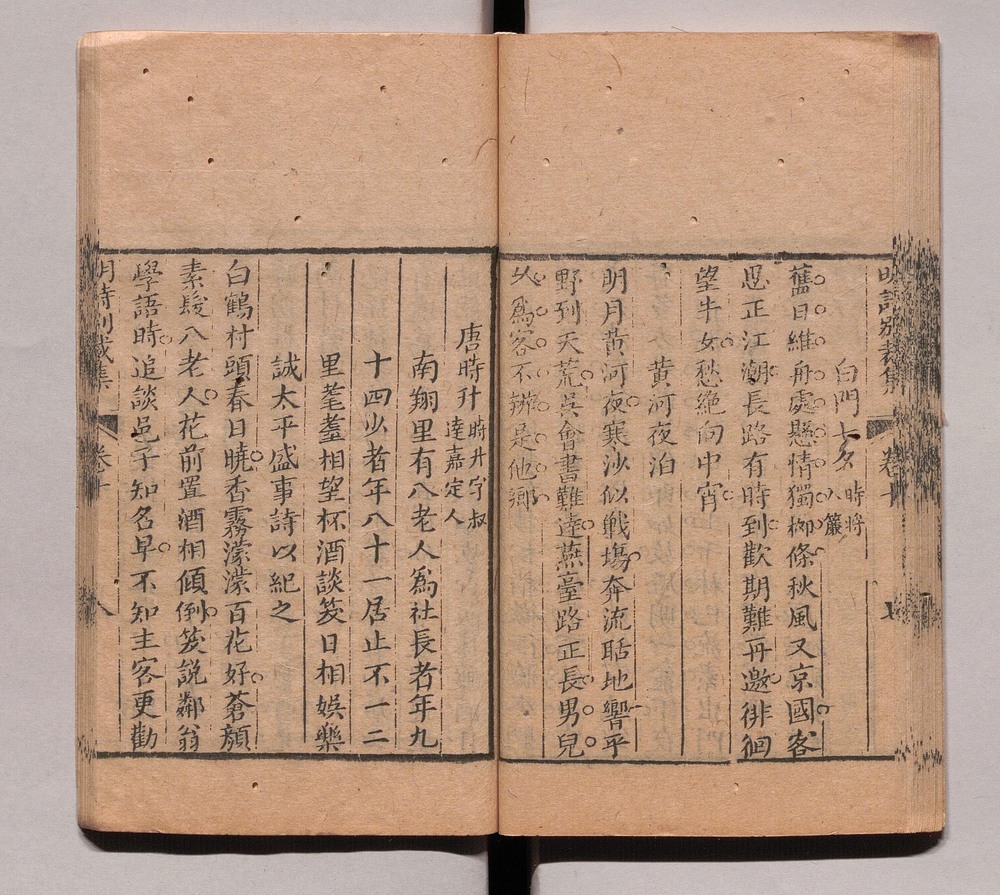 明詩別裁集 卷十 七
白門七夕 時將入簾
舊日維舟處懸情獨柳條秋風又京國客
思正江潮長路有時到歡期難再邀徘徊
望牛女愁絕向中宵
黃河夜泊
明月黃河夜寒沙似戰場奔流聒地響平
野到天荒吳會書難達燕臺路正長男兒
久爲客不辨是他鄉
唐時升 時升字叔達嘉定人
南翔里有八老人爲社長者年九
十四少者年八十一居止不一二
里耄耋相望杯酒談笑日相娛樂
誠太平盛事詩以紀之
白鶴村頭春日曉香霧濛濛百花好蒼顏
素髮八老人花前置酒相傾倒笑說鄰翁
學語時追談邑子知名早不知主客更勸
明詩別裁集 卷十 八